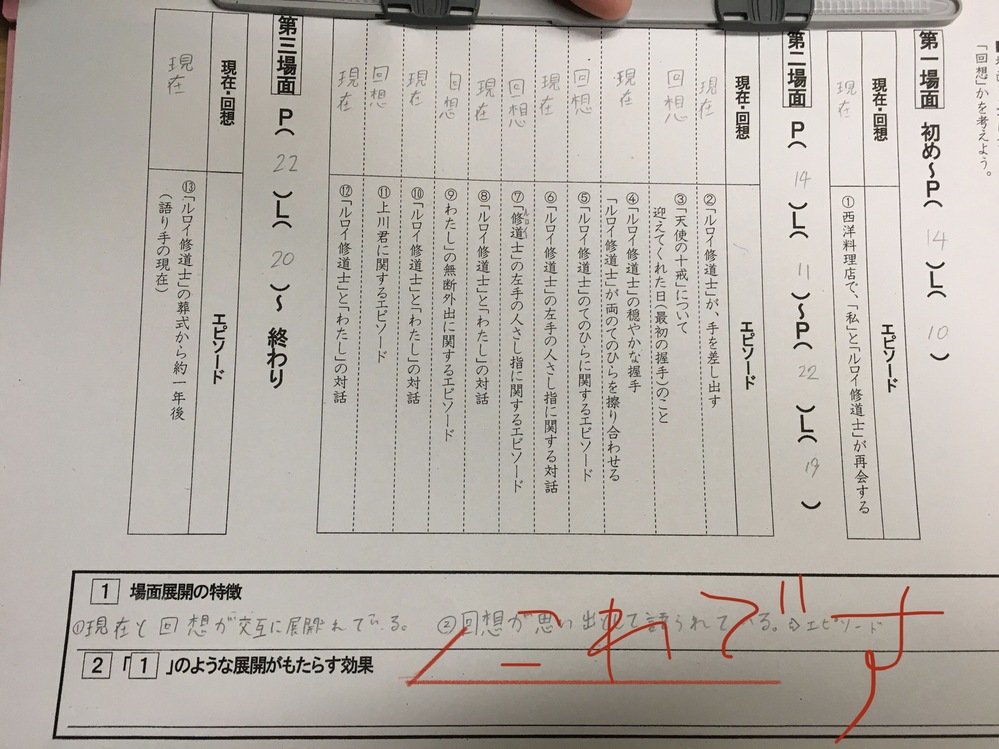 「回想」かを考えよう。
第一場面 初め〜P( 14 )L( 10 )
現在・回想 エピソード
現在 ①西洋料理店で、「私」と「ルロイ修道士」が再会する
第二場面 P( 14 )L( 11 )〜P( 22 )L( 19 )
現在・回想 エピソード
現在 ②「ルロイ修道士」が、手を差し出す
回想 ③「天使の十戒」について
迎えてくれた日(最初の握手)のこと
現在 ④「ルロイ修道士」の穏やかな握手
「ルロイ修道士」が両のてのひらを擦り合わせる
回想 ⑤「ルロイ修道士」のてのひらに関するエピソード
現在 ⑥「ルロイ修道士」の左手の人さし指に関する対話
回想 ⑦「修道士」の左手の人さし指に関するエピソード
ルロイ
現在 ⑧「ルロイ修道士」と「わたし」の対話
回想 ⑨わたし」の無断外出に関するエピソード
現在 ⑩「ルロイ修道士」と「わたし」の対話
回想 ⑪上川君に関するエピソード
現在 ⑫「ルロイ修道士」と「わたし」の対話
第三場面 P( 22 )L( 20 )〜 終わり
現在・回想 エピソード
現在 ⑬「ルロイ修道士」の葬式から約一年後
(語り手の現在)
1 場面展開の特徴
①現在と回想が交互に展開れている。 ②回想が思い出として語られている。⇨エピソード
これです
2 「1」のような展開がもたらす効果